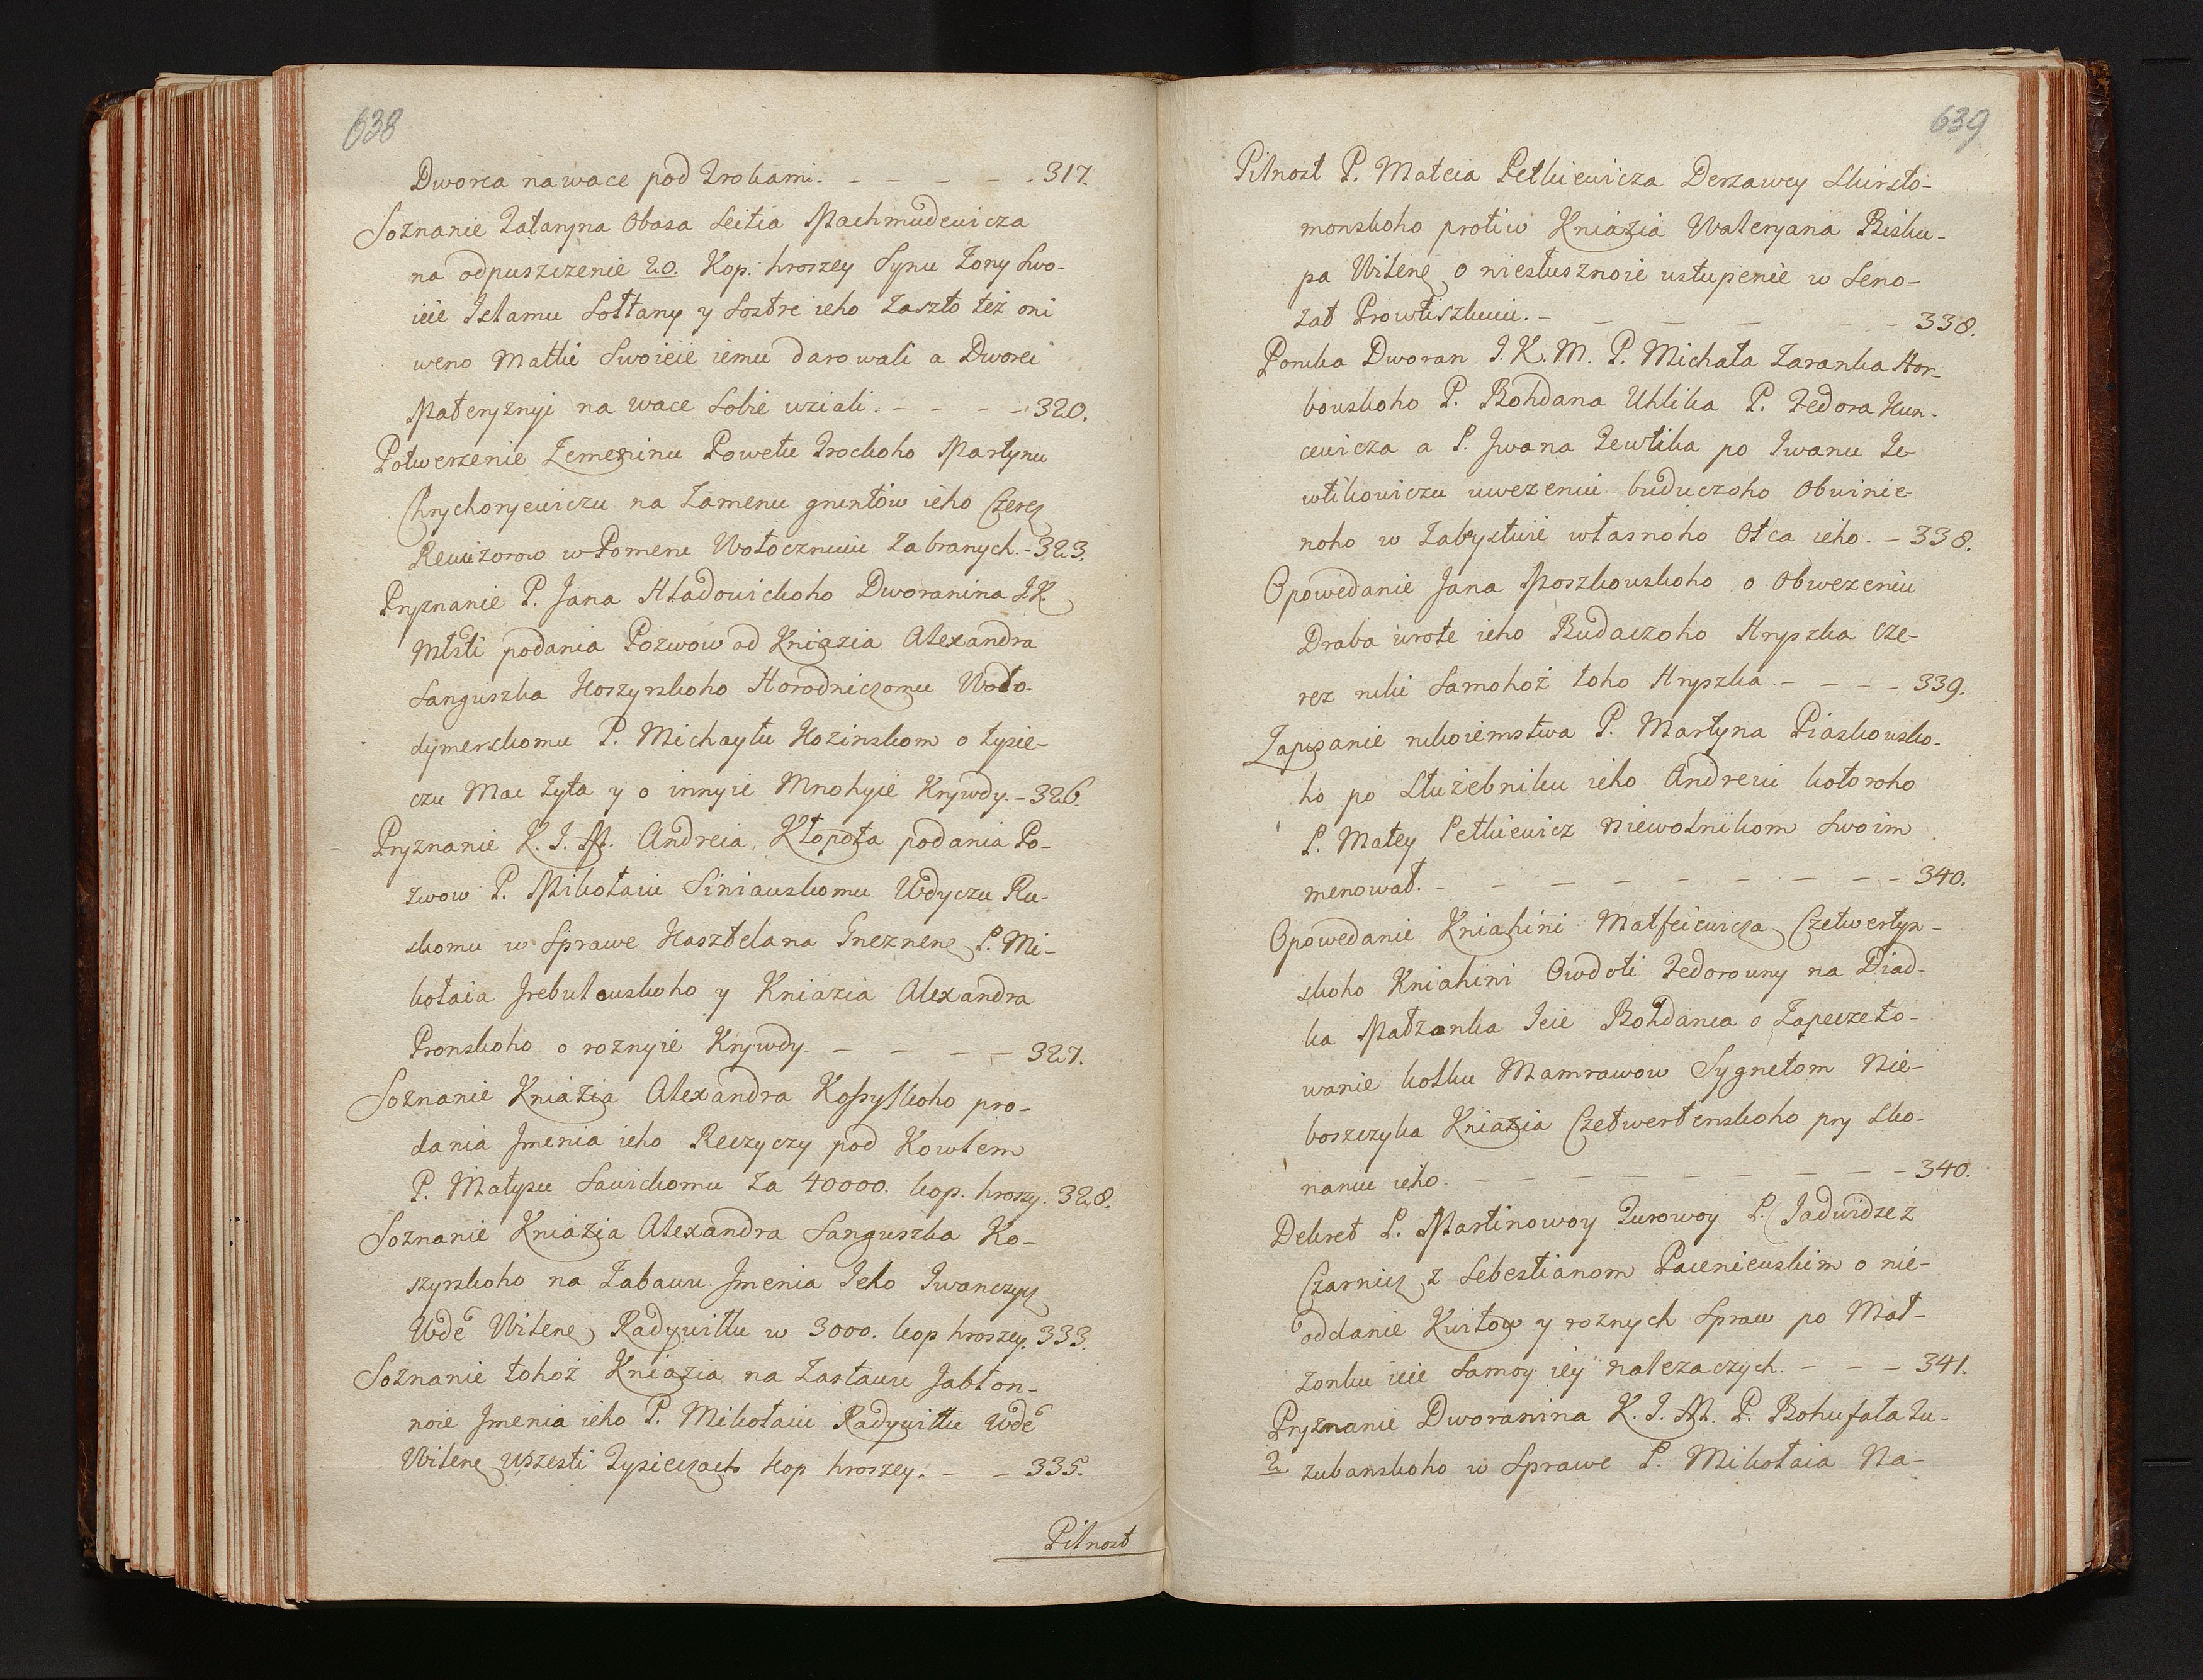 638
Dworca na wace pod Trokami. - - - - - 317.
Soznanie Tataryna Obasa Seitia Machmudewicza
na odpuszczenie 20. Kop. hroszey Synu Zony Swo-
ieie Islamu Sołtany y Sostre ieho Zaszto też oni
weno Matki Swoieie iemu darowali a Dworci
Materyznyi na wace Sobie wziali. - - - - 320.
Potwerzenie Zemeninu Powetu Trockoho Martynu
Chrychoryewiczu na Zamenu gruntów ieho Czerez
Rewizorow w Pomeru Wołocznuiu Zabranych. - 323.
Pryznanie P. Jana Hładowickoho Dworanina J.K.
Młsti podania Pozwow od Kniazia Alexandra
Sanguszka Koszyrskoho Horodniczomu Woło-
dymerskomu P. Michayłu Kozinskom o tysie-
czu Mac Zyta y o innyie Mnohyie Krywdy. - 326.
Pryznanie K. J. M. Andreia Kłopota podania Po-
zwow P. Mikołaiu Siniauskomu Wdyczu Ru-
skomu w Sprawe Kasztelana Gneznene P. Mi-
kołaia Trebułouskoho y Kniazia Alexandra
Pronskoho o roznyie Krywdy. - - - - 327.
Soznanie Kniazia Alexandra Koszyskoho pro-
dania Jmenia ieho Reczyczy pod Kowlem
P. Matysu Sawickomu Za 40000. kop. hroszy. 328.
Soznanie Kniazia Alexandra Sanguszka Ko-
szyrskoho na Zabawu Jmenia Jeho Iwanczyc
Wde Wilene Radywiłłu w 3000. kop hroszey. 333.
Soznanie tohoż Kniazia na Zastawu Jabłon-
noie Jmenia ieho P. Mikołaiu Radywiłłu Wde
Wilene Wszesti Tysieczach kop hroszey. - - 335.
Pilnost
639
Pilnost P. Mateia Petkiewicza Derzawcy Skirsto-
monskoho protiw Kniazia Waleryana Bisku-
pa Wilene o niesłusznoie ustupenie w Seno-
zat Prowtiszkuiu. - - - - - - 338.
Poruka Dworan J. K. M. P. Michała Zaranka Hor-
bouskoho P. Bohdana Uhlika P. Fedora Kun-
cewicza a P. Jwana Jewtika po Iwanu Je-
wtikowiczu uwezeniu buduczoho Obwinie-
noho w Zabystwie własnoho Otca ieho. - 338.
Opowedanie Jana Moszkouskoho o Obwezeniu
Draba wrote ieho Budaczoho Hryszka cze-
rez ruki Samohoż toho Hryszka - - - - 339.
Zapisanie rukoiemstwa P. Martyna Piaskousko-
ho po Służebniku ieho Andreiu kotoroho
P. Matey Petkiewicz Niewolnikom Swoim
menował. - - - - - - - - - 340.
Opowedanie Kniahini Matfeiewicza Czetwertyn-
skoho Kniahini Owdoti Fedorouny na Diad-
ka Małzonka Ieie Bohdana o Zapeczeto-
wanie kołku Mamrawow Sygnetom Nie-
boszczyka Kniazia Czetwertenskoho pry Sko-
naniu ieho. - - - - - - - - 340.
Dekret P. Martinowoy Turowoy P. Jadwidze z
Czarnicz z Sebestianom Pacenieuskim o nie-
oddanie Kwitow y roznych Spraw po Mał-
zonku ieie Samoy iey należaczych. - - - 341.
Pryznanie Dworanina K. J. M. P. Bohufała Tu-
2. zubanskoho w Sprawe P. Mikołaia Na-